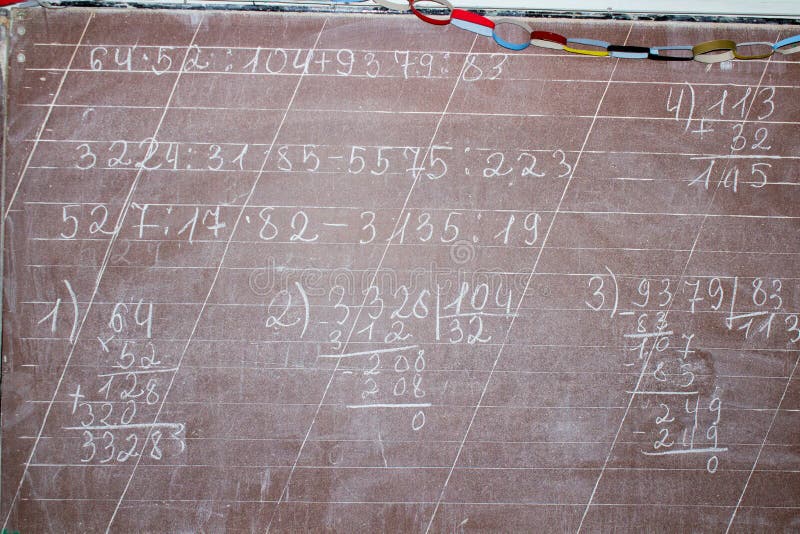 64·52:104+9379:83
3224:31·85-5575:223
527:17·82-3135:19
1) 64
×
52
128
+
320
33283
2) 3328 104
- 312 32
- 208
208
0
3) - 9379 83
83 113
- 107
83
- 249
249
0
4) 113
+ 32
145
dreamstime